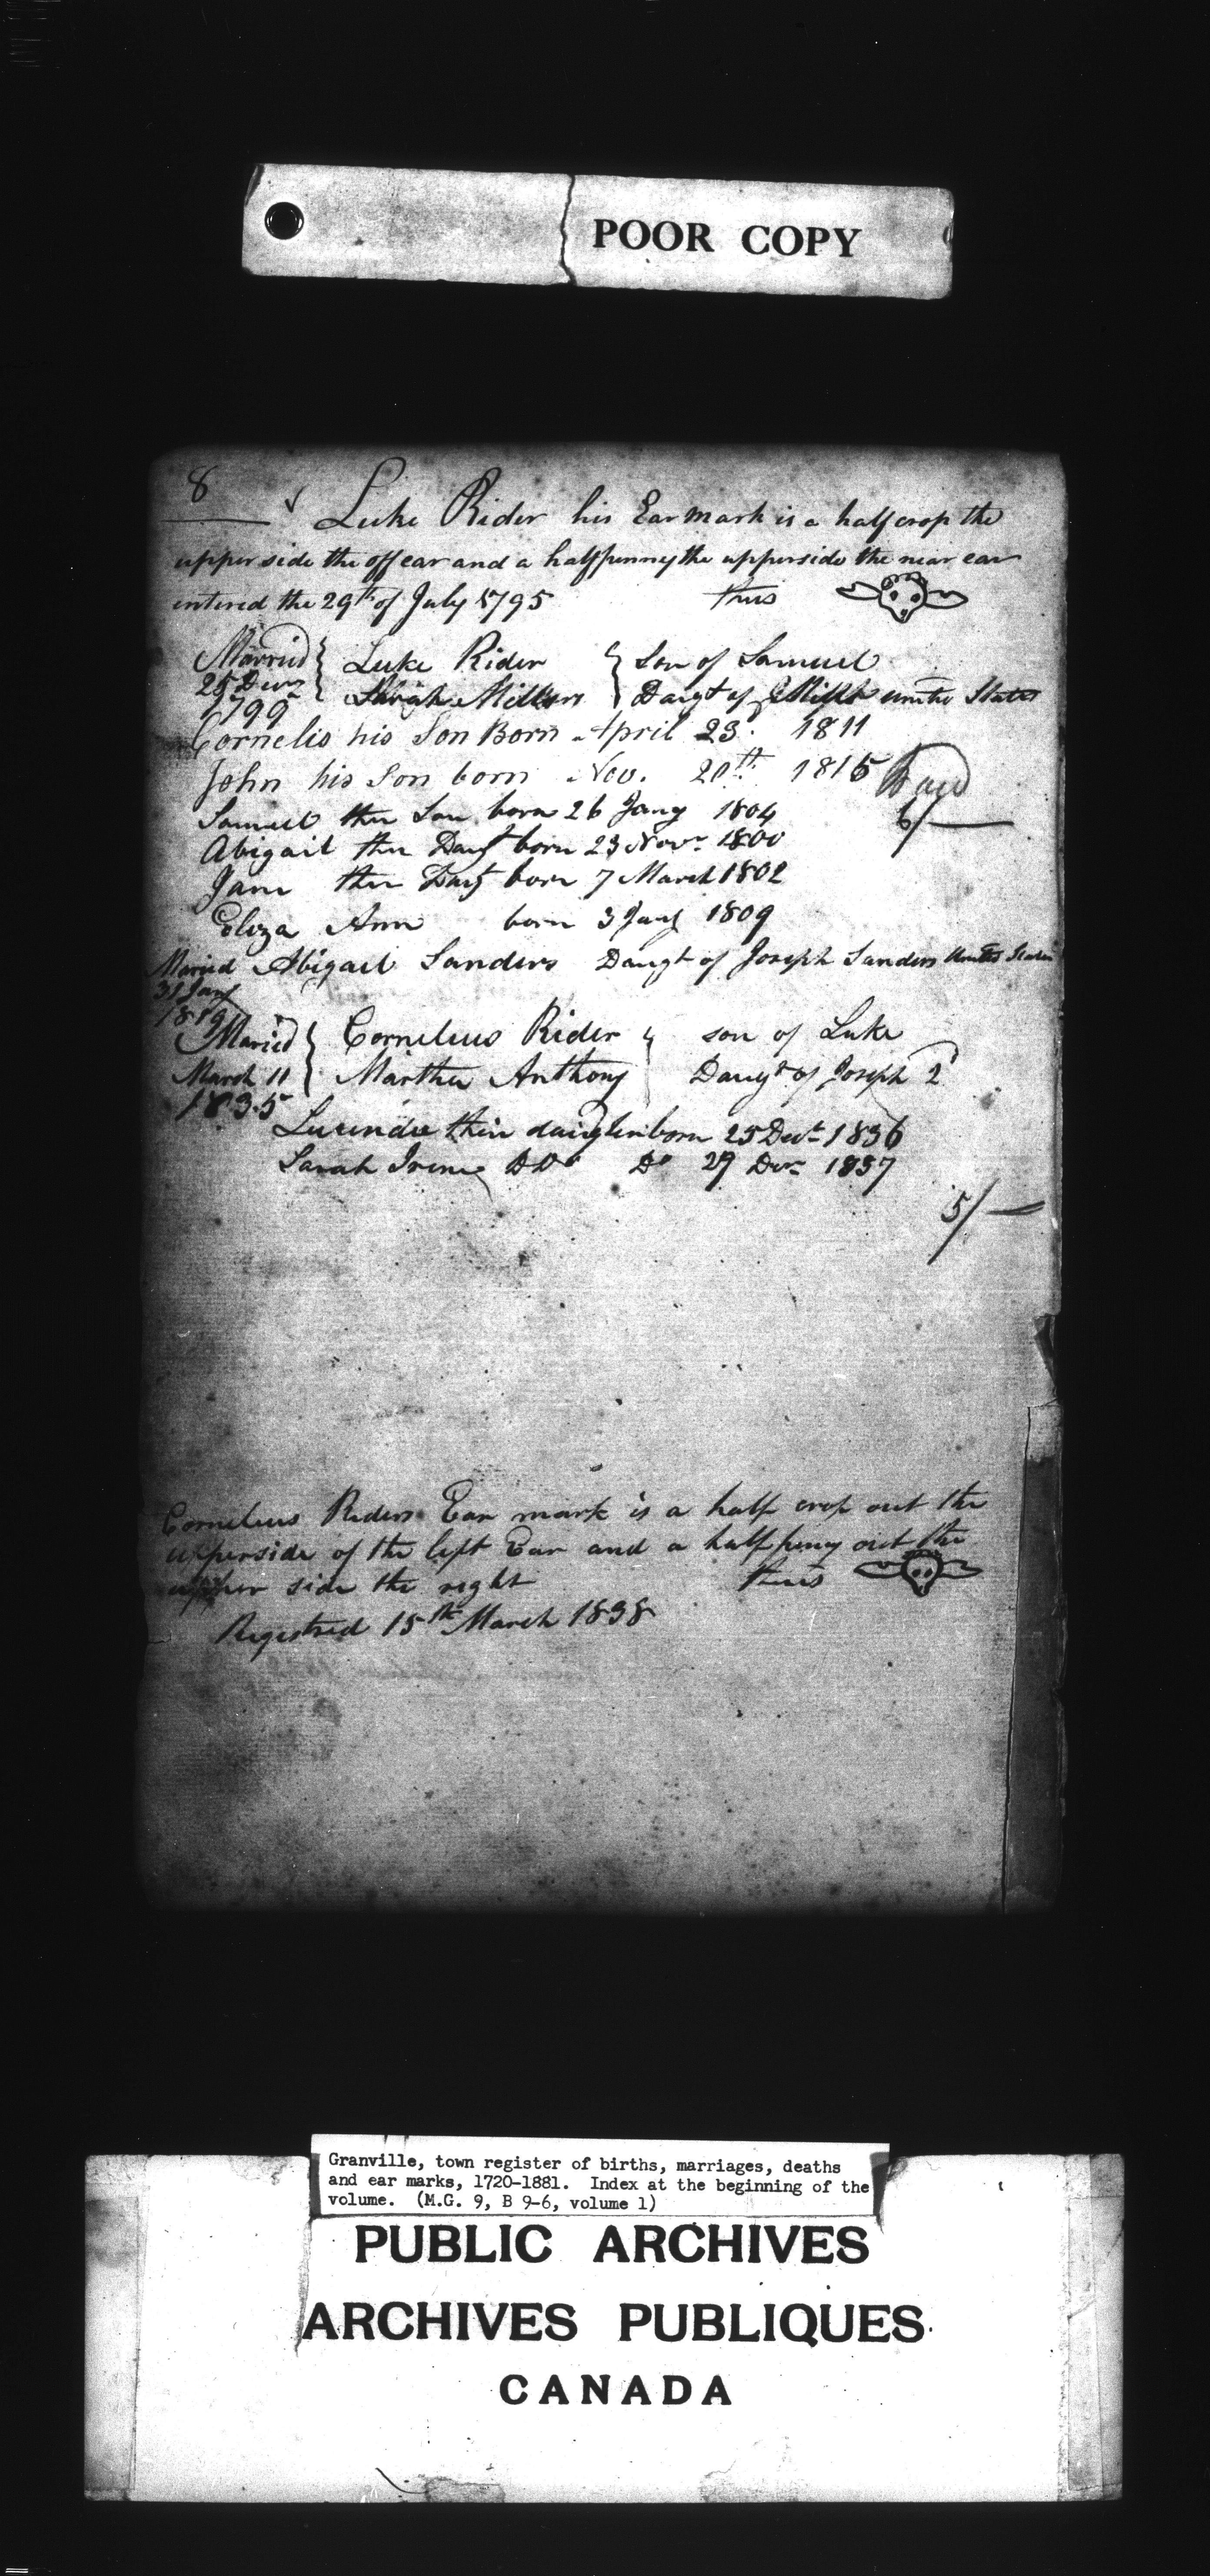 POOR COPY
8
Luke Rider his Ear mark is a half crop the
upper side the off ear and a halfpenny the upperside the near ear
entered the 29th of July 1795 thus
Married
25 Decr
1799
Luke Rider
Son of Samuel
Sarah
Daugt of United States
Cornelis his Son Born April 23. 1811
John his Son born Nov. 20th 1815 Paid
Samuel ther Son born 26 Jany 1804 6/—
Abigail ther Daugt born 23 Novr 1800
Jane ther Daugt born 7 March 1802
Eliza Ann born 3 Jany 1809
Maried Abigail Sanders Daugt of Joseph Sanders United States
31 Jany
Maried
March 11
1835
Cornelius Rider
son of Luke
Martha Anthony
Daugt of Joseph 2
Lucinda thin daughter born 25 1836
Sarah Irene Do Do 29 Decr 1837
5/—
Cornelius Riders Ear mark is a half crop out the
upperside of the left Ear and a halfpeny out the
upper side the right thus
Registred 15th March 1838
Granville, town register of births, marriages, deaths
and ear marks, 1720-1881. Index at the beginning of the
volume. (M.G. 9, B 9-6, volume 1)
PUBLIC ARCHIVES
ARCHIVES PUBLIQUES
CANADA